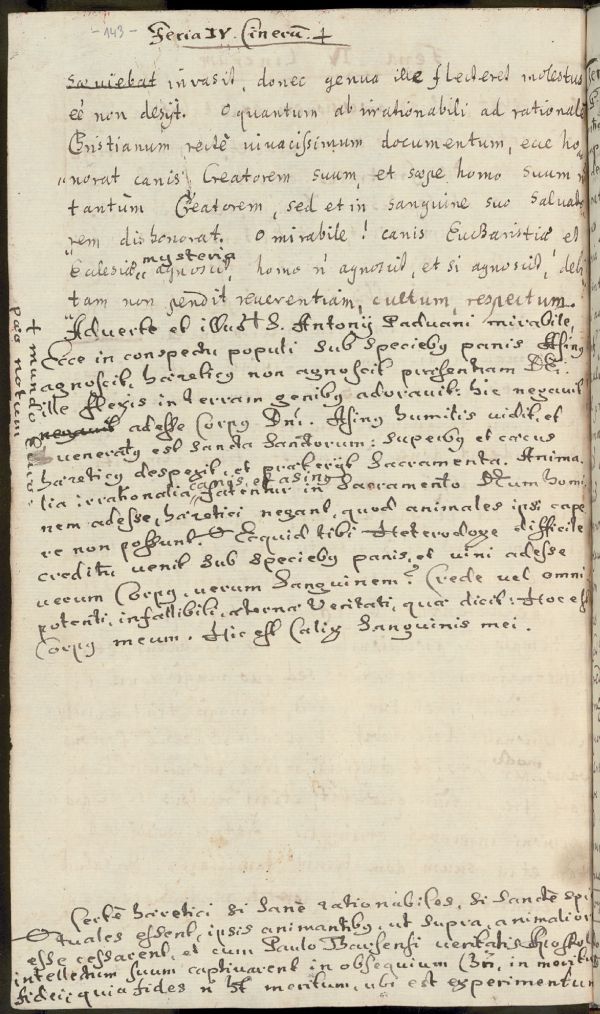 - 143 -
Feria IV. Cinerũ. +
sæviebat invasit, donec genua ille flecteret molestus
eē non desijt. O quantum ab irrationabili ad rationale
Christianum rectè vivacissimum documentum, ecce ho
norat canis Creatorem suum, et sæpe homo suum n
tantùm Creatorem, sed et in sanguine suo Salvato
rem dishonorat. O mirabile! canis Eucharistiæ et
mysteria
Eclesiæ agnoscit, homo n̄ agnoscit, et si agnoscit, debi
tam non pendit reverentiam, cultum, respectum.
Adverte et illud S. Antonij Paduani mirabile,
+ mundo
notum
Ecce in conspectu populi sub speciebꝰ panis Asinꝰ
agnoscit, hæreticꝰ non agnoscit præsentiam Dei.
ille flexis in terram genibꝰ adoravit: hic negavit
negavit adesse Corpꝰ Dnī. Asinꝰ humilis vidit, et
veneratꝰ est Sancta Sanctorum: superbꝰ et cæcus
hæreticꝰ despexit, et præterijt Sacramenta. Anima
canis, et asinꝰ
lia irrationalia fatentur in Sacramento Deum homi
nem adesse, hæretici negant, quod animales ipsi cape
re non possunt. Ecquid tibi Heterodoxe difficile
creditu venit sub speciebꝰ panis, et vini adesse
verum Corpꝰ, verum Sanguinem? Crede vel omni
potenti, infallibili, æternæ Veritati, quæ dicit: Hoc est
Corpꝰ meum. Hic est Calix Sanguinis mei.
Certè hæretici si sanè rationabiles, si sanctè spi
rituales essent, ipsis animantibꝰ, ut supra, animalior
esse cessarent, et cum Paulo Tarsensi veritatis Apostolo
intellectum suum captivarent in obsequium Chri, in meritum
fidei; quia fides n̄ ht meritum, ubi est experimentum